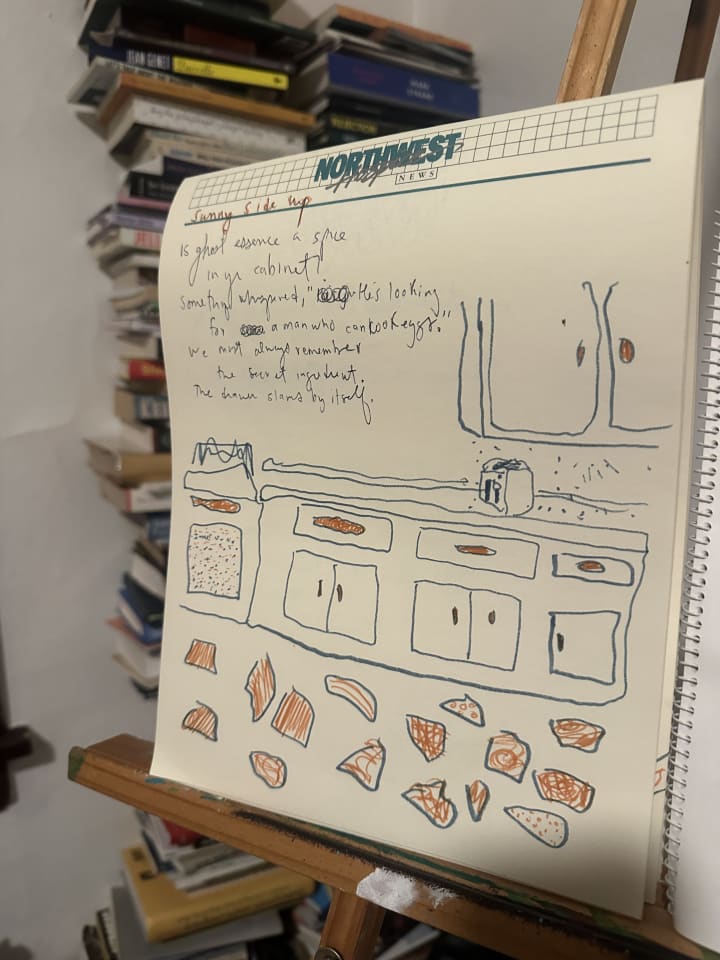 JEAN GENET
NORTHWEST
NEWS
Sunny Side Up
Is ghost essence a spice
in yr cabinet?
Something whispered, "He's looking
for a man who can cook eggs."
We must always remember
the secret ingredient.
The drawer slams by itself.